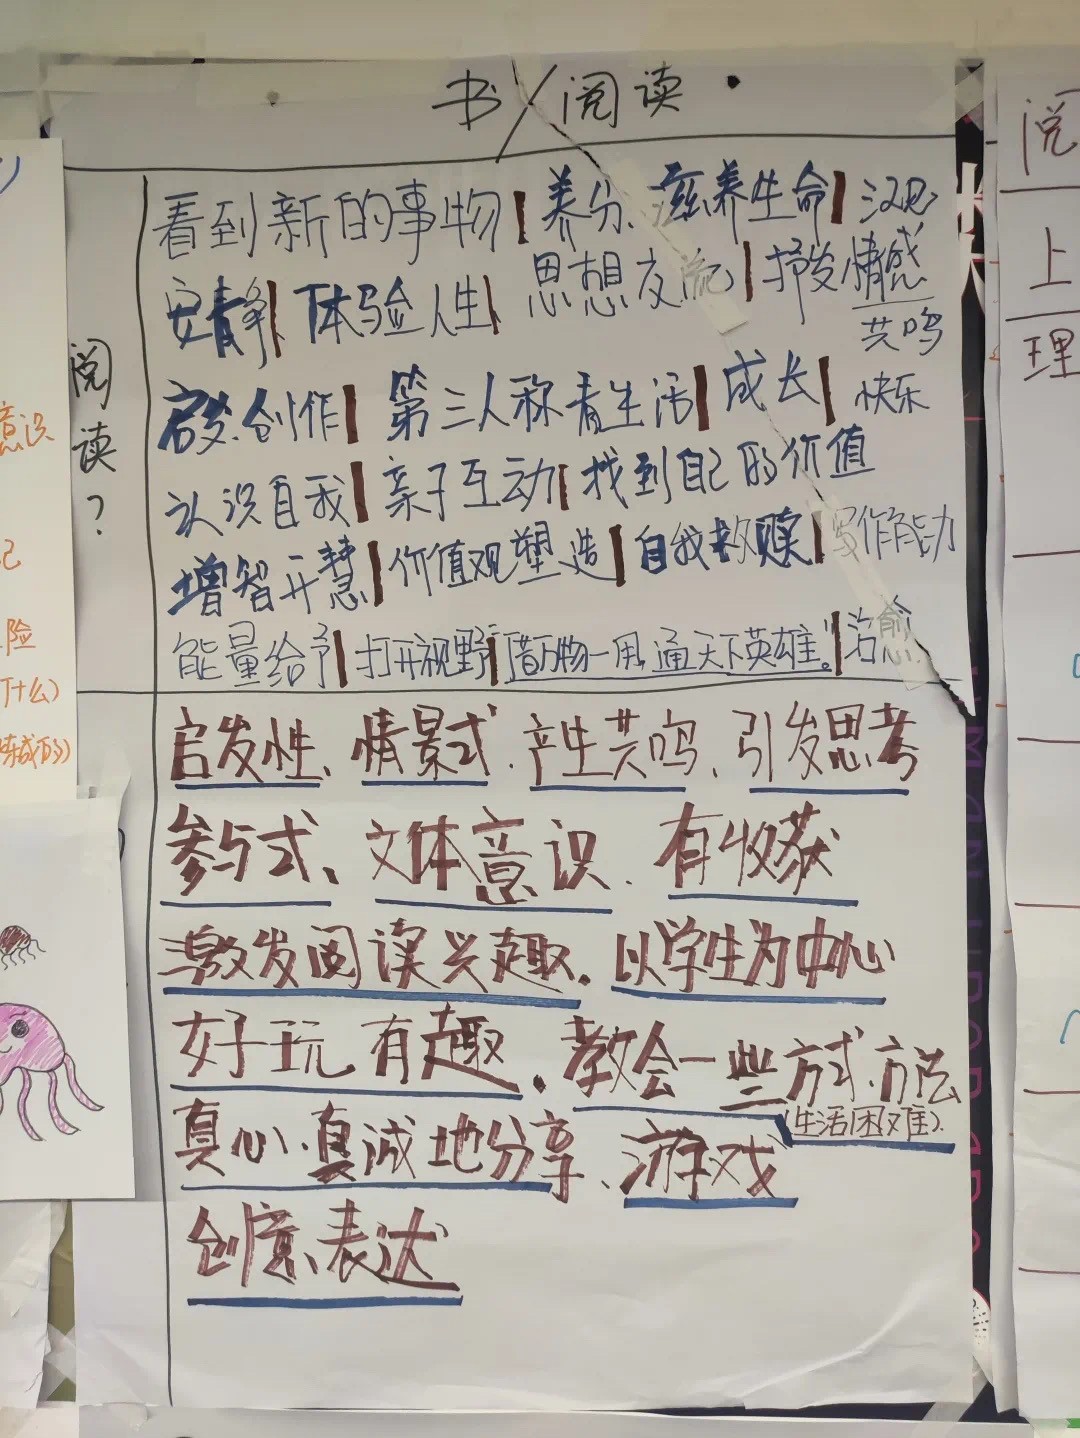 书/阅读
阅读？
看到新的事物|养分、滋养生命|沉思
安静|体验人生|思想交流|抒发情感
共鸣
启发.创作|第三人称看生活|成长|快乐
认识自我|亲子互动|找到自己的价值
增智开慧|价值观塑造|自我救赎|写作能力
能量给予|打开视野|"借万物一用,通天下英雄。"|治愈
启发性、情景式、产生共鸣、引发思考
参与式、文体意识、有收获
激发阅读兴趣。以学生为中心
好玩 有趣。教会一些方式、方法
(生活困难)
真心、真诚地分享、游戏
创意、表达
意识
己
险
什么)
阅
上
理